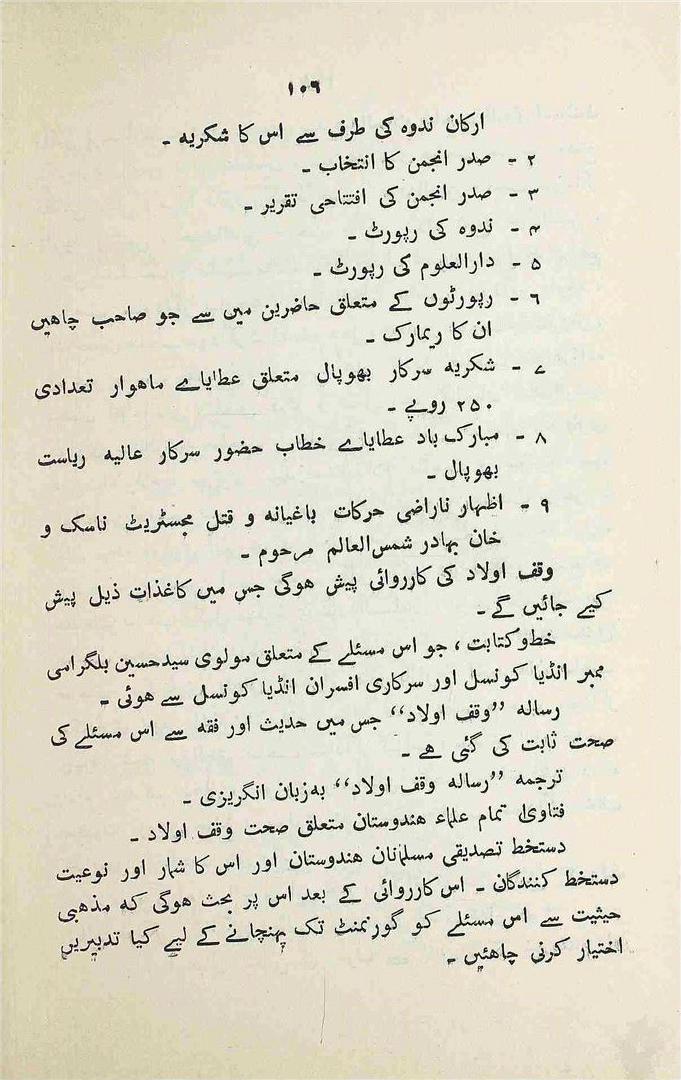 ١٠٦
ارکان ندوہ کی طرف سے اس کا شکریہ ۔
۲ ۔ صدر انجمن کا انتخاب ۔
۳ ۔ صدر انجمن کی افتتاحی تقریر ۔
۴ ۔ ندوہ کی رپورٹ ۔
۵ ۔ دارالعلوم کی رپورٹ ۔
۶ ۔ رپورٹوں کے متعلق حاضرین میں سے جو صاحب چاھیں
ان کا ریمارک ۔
۷ ۔ شکریہ سرکار بھوپال متعلق عطایاے ماھوار تعدادی
۲۵۰ روپے ۔
۸ ۔ مبارک باد عطایاے خطاب حضور سرکار عالیہ ریاست
بھوپال ۔
۹ ۔ اظہار ناراضی حرکات باغیانہ و قتل مجسٹریٹ ناسک و
خان بہادر شمس العالم مرحوم ۔
وقف اولاد کی کارروائی پیش ھوگی جس میں کاغذات ذیل پیش
کیے جائیں گے ۔
خط و کتابت ، جو اس مسئلے کے متعلق مولوی سید حسین بلگرامی
ممبر انڈیا کونسل اور سرکاری افسران انڈیا کونسل سے ھوئی ۔
رسالہ ”وقف اولاد“ جس میں حدیث اور فقہ سے اس مسئلے کی
صحت ثابت کی گئی ھے ۔
ترجمہ ”رسالہ وقف اولاد“ بہ زبان انگریزی ۔
فتاویٰ تمام علماء ھندوستان متعلق صحت وقف اولاد ۔
دستخط تصدیقی مسلمانان ھندوستان اور اس کا شمار اور نوعیت
دستخط کنندگان ۔ اس کارروائی کے بعد اس پر بحث ھوگی کہ مذھبی
حیثیت سے اس مسئلے کو گورنمنٹ تک پہنچانے کے لیے کیا تدبیریں
اختیار کرنی چاھئیں ۔